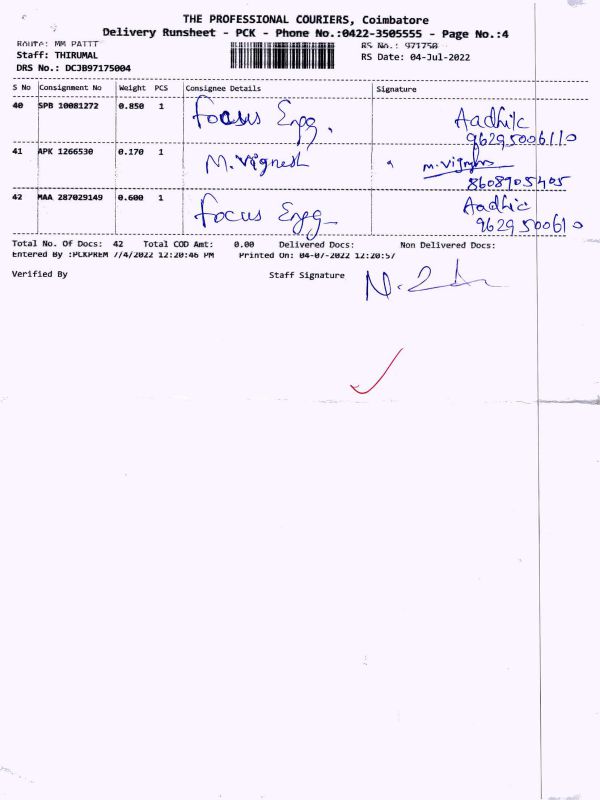 THE PROFESSIONAL COURIERS, Coimbatore
Delivery Runsheet - PCK - Phone No.:0422-3505555 - Page No.:4
Route: MM PATTI RS No.: 971750
Staff: THIRUMAL RS Date: 04-Jul-2022
DRS No.: DCJB97175004
S No Consignment No Weight PCS Consignee Details Signature
40 SPB 10081272 0.850 1 Focus Engg. Aadhic
9629500610
41 APK 1266530 0.170 1 M.Vignesh M.Vignesh
8608905405
42 MAA 287029149 0.600 1 Focus Engg Aadhic
9629500610
Total No. Of Docs: 42 Total COD Amt: 0.00 Delivered Docs: Non Delivered Docs:
Entered By :PCKPREM 7/4/2022 12:20:46 PM Printed On: 04-07-2022 12:20:57
Verified By Staff Signature